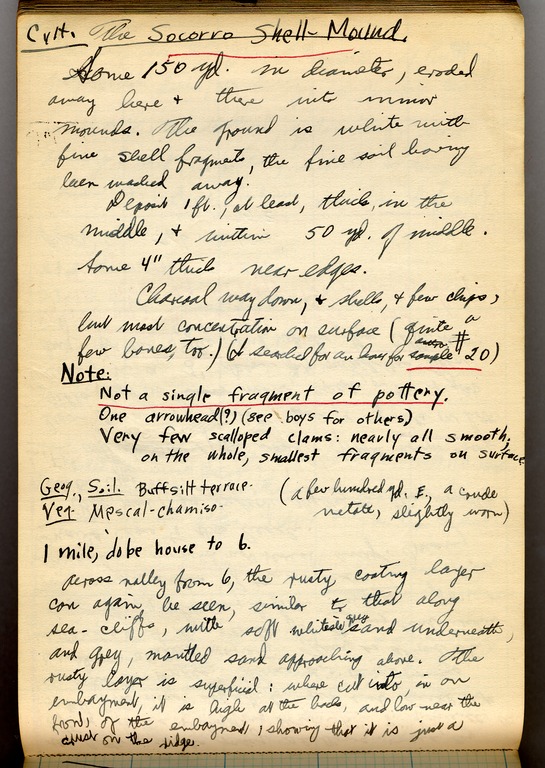 Cult. The Socorro Shell-Mound.
Some 150 yd. in diameter, eroded
away here + there into minor
mounds. The ground is white with
fine shell fragments, the fine soil having
been washed away.
Deposit 1 ft., at least, thick, in the
middle, + within 50 yd. of middle.
Some 4" thick near edges.
Charcoal way down, + shells, + few chips,
but most concentration on surface (quite a
few bones, too.) (I searched for an hour for sample #20)
Note:
Not a single fragment of pottery.
One arrowhead(?) (see boys for others)
Very few scalloped clams: nearly all smooth.
on the whole, smallest fragments on surface
Geog., Soil. Buff silt terrace.
(a few hundred yd. E., a crude
Veg. Mescal-chamiso.
metate, slightly worn)
1 mile, 'dobe house to 6.
Across valley from 6, the rusty coating layer
can again be seen, similar to that along
sea-cliffs, with soft whitish grey sand underneath,
and grey, mantled sand approaching above. The
rusty layer is superficial: where cut into, in an
embayment, it is high at the back, and low near the
front, of the embayment, showing that it is just a
crust on the ridge.